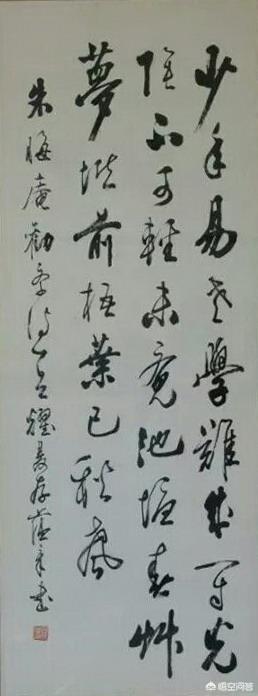 少年易老學難成一寸光
陰不可輕未覺池塘春艸
夢堦前梧葉已秋風
朱晦庵勸學詩
悟空问答